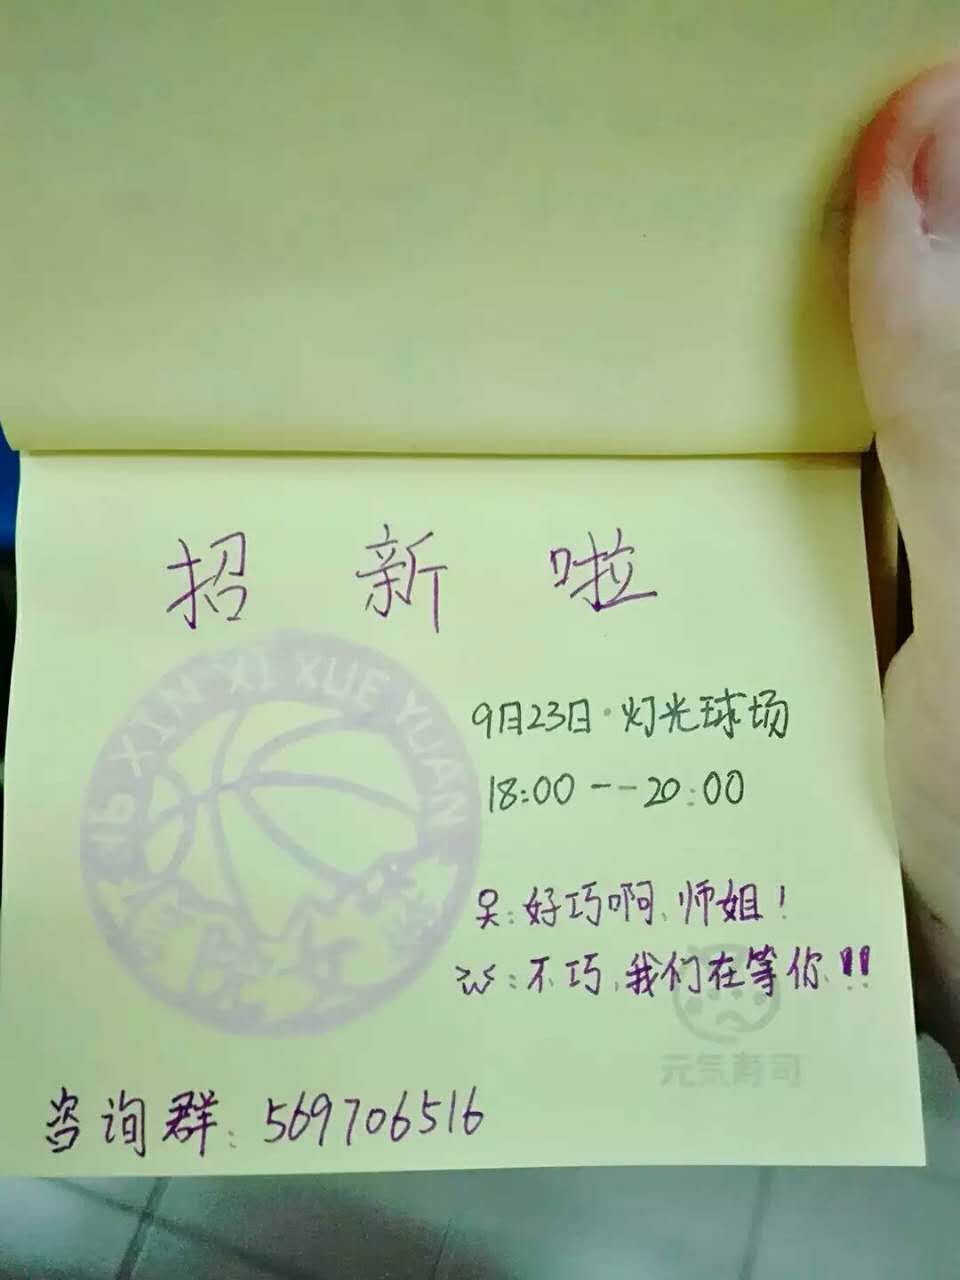 招 新 啦
XIN XI XUE YUAN
9月23日·灯光球场
18:00 -- 20:00
:好巧啊、师姐!
:不巧,我们在等你、!!
元気寿司
咨询群: 569706516